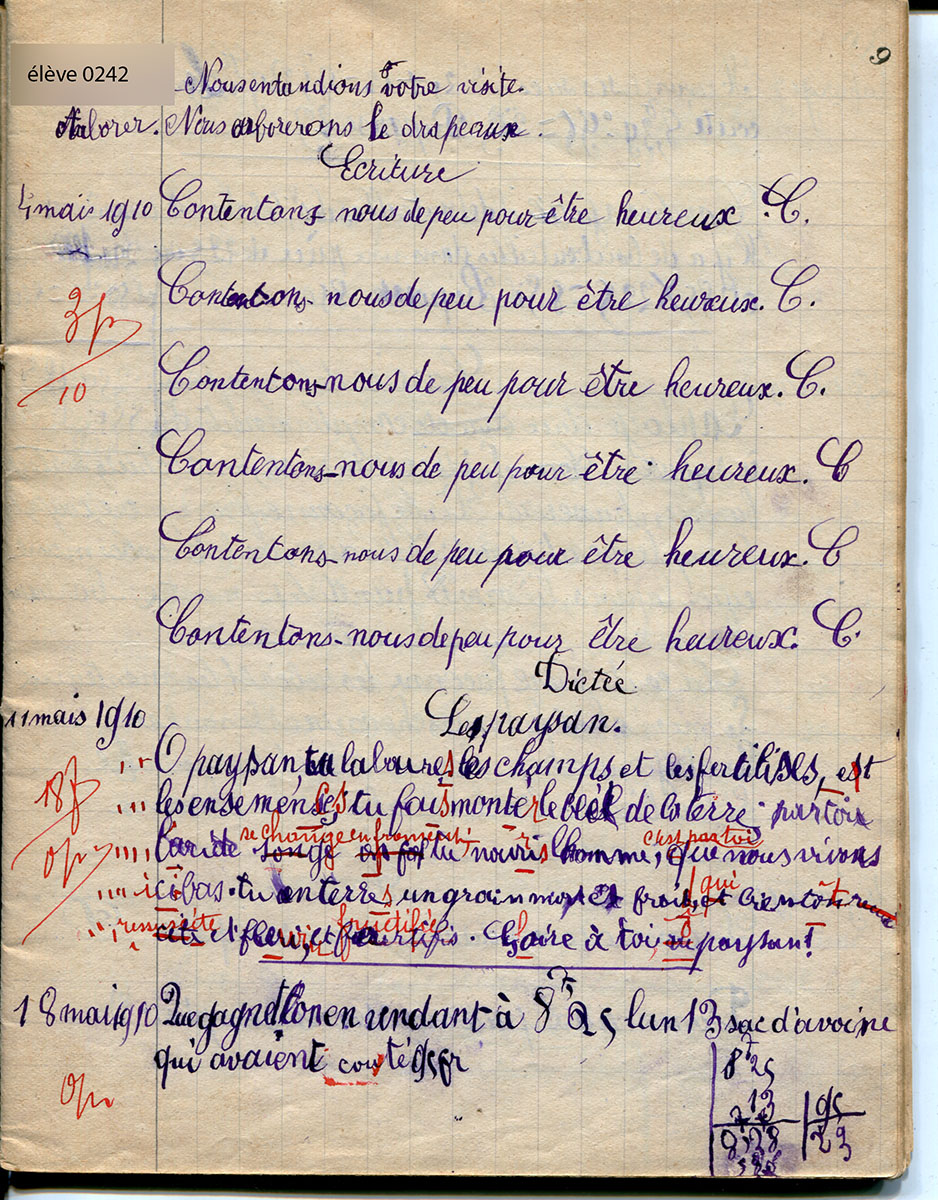 9
élève 0242
Nous entandions votre visite.
Arborer. Nous arborerons le drapeaux.
Ecriture
4 mais 1910 Contentons nous de peu pour être heureux. C.
Contentons-nous de peu pour être heureux. C.
3p
10
Contentons-nous de peu pour être heureux. C.
Contentons-nous de peu pour être heureux. C
Contentons-nous de peu pour être heureux. C
Contentons-nous de peu pour être heureux. C.
Dictée
11 mais 1910 Le paysan.
O paysan, tu laboures les champs et les fertilises,
18f les ensemences tu fais monter le blé de la terre par toi
se change en froment c'est par toi
0p l'aride tu nouris l'homme, que nous vivons
ici bas. tu enterres un grain mort et froid, qui bientôt
ressucite fleuri, fructifie. Gloire à toi, paysan!
18 mai 1910 Que gagnet lon en vendant à 8f 25 lun 13 sac d'avoine
qui avaient couté 95fr
0p
8f 25
13
95
23